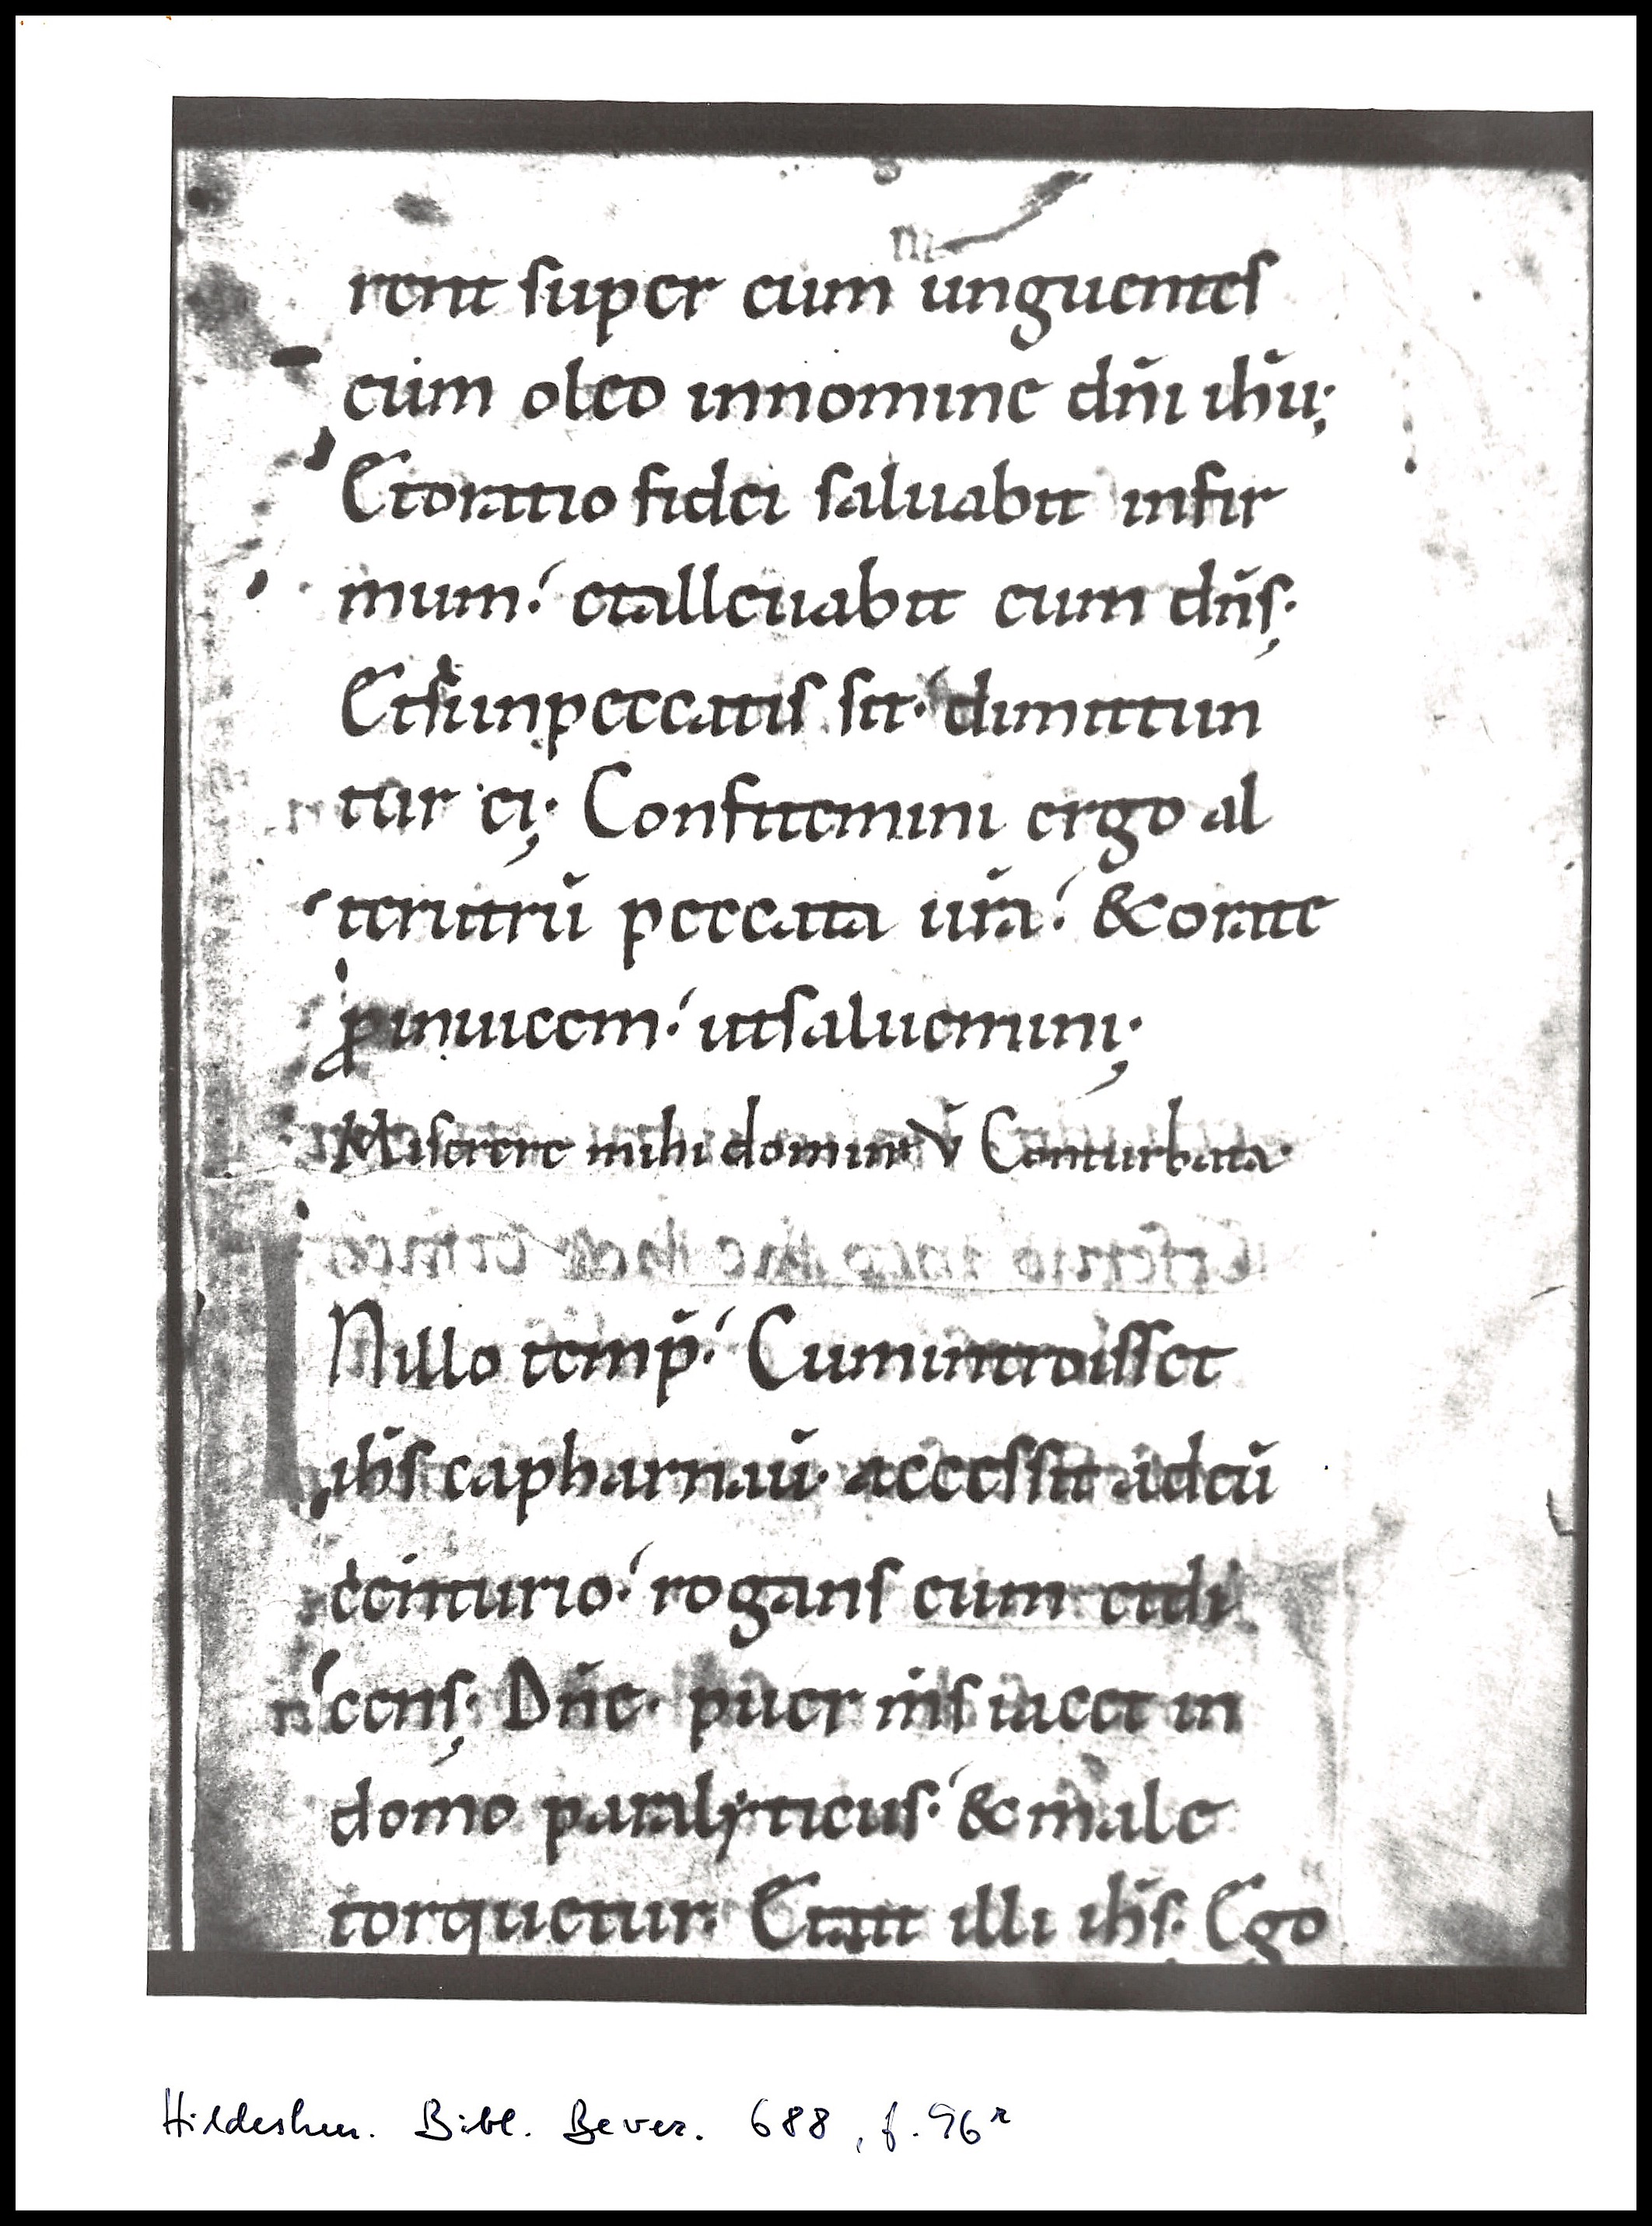 rent super eum unguentes
eum oleo innomine dn̄i ih̄u;
Etoratio fidei saluabit infir
mum: etalleuabit eum dn̄s;
Etsiinpeccatis sit: dimittun
tur ei; Confitemini ergo al
terutrū peccata ur̄a: &orate
ꝓinuicem: utsaluemini;
Miserere mihi domine v̄ Conturbata·
Nillo temp̄: Cumintroisset
ih̄s capharnaū· accessit adeū
centurio: rogans eum etdi
cens; Dn̄e· puer m̄s iacet in
domo paralyticus: &male
torquetur· Etait illi ih̄s· Ego
Hildesheim. Bibl. Bever. 688, f. 96r